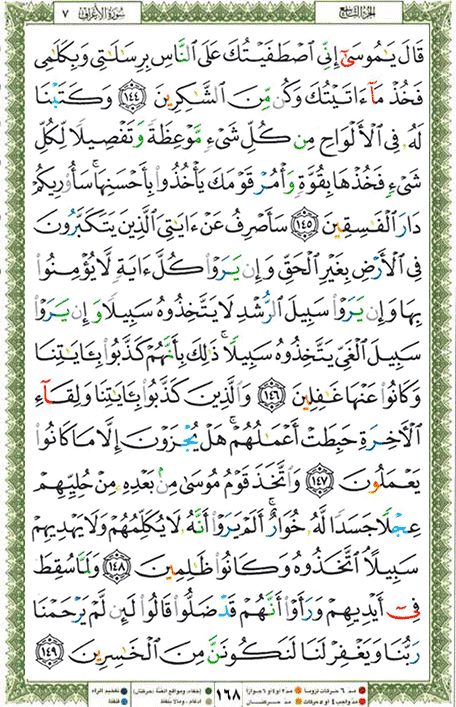 الجزء التاسع سورة الأعراف ٧
قَالَ يَٰمُوسَىٰٓ إِنِّي ٱصۡطَفَيۡتُكَ عَلَى ٱلنَّاسِ بِرِسَٰلَٰتِي وَبِكَلَٰمِي
فَخُذۡ مَآ ءَاتَيۡتُكَ وَكُن مِّنَ ٱلشَّٰكِرِينَ ١٤٤ وَكَتَبۡنَا
لَهُۥ فِي ٱلۡأَلۡوَاحِ مِن كُلِّ شَيۡءٖ مَّوۡعِظَةٗ وَتَفۡصِيلٗا لِّكُلِّ
شَيۡءٖ فَخُذۡهَا بِقُوَّةٖ وَأۡمُرۡ قَوۡمَكَ يَأۡخُذُواْ بِأَحۡسَنِهَاۚ سَأُوْرِيكُمۡ
دَارَ ٱلۡفَٰسِقِينَ ١٤٥ سَأَصۡرِفُ عَنۡ ءَايَٰتِيَ ٱلَّذِينَ يَتَكَبَّرُونَ
فِي ٱلۡأَرۡضِ بِغَيۡرِ ٱلۡحَقِّ وَإِن يَرَوۡاْ كُلَّ ءَايَةٖ لَّا يُؤۡمِنُواْ
بِهَا وَإِن يَرَوۡاْ سَبِيلَ ٱلرُّشۡدِ لَا يَتَّخِذُوهُ سَبِيلٗا وَإِن يَرَوۡاْ
سَبِيلَ ٱلۡغَيِّ يَتَّخِذُوهُ سَبِيلٗاۚ ذَٰلِكَ بِأَنَّهُمۡ كَذَّبُواْ بِـَٔايَٰتِنَا
وَكَانُواْ عَنۡهَا غَٰفِلِينَ ١٤٦ وَٱلَّذِينَ كَذَّبُواْ بِـَٔايَٰتِنَا وَلِقَآءِ
ٱلۡأٓخِرَةِ حَبِطَتۡ أَعۡمَٰلُهُمۡۚ هَلۡ يُجۡزَوۡنَ إِلَّا مَا كَانُواْ
يَعۡمَلُونَ ١٤٧ وَٱتَّخَذَ قَوۡمُ مُوسَىٰ مِنۢ بَعۡدِهِۦ مِنۡ حُلِيِّهِمۡ
عِجۡلٗا جَسَدٗا لَّهُۥ خُوَارٌۚ أَلَمۡ يَرَوۡاْ أَنَّهُۥ لَا يُكَلِّمُهُمۡ وَلَا يَهۡدِيهِمۡ
سَبِيلًاۘ ٱتَّخَذُوهُ وَكَانُواْ ظَٰلِمِينَ ١٤٨ وَلَمَّا سُقِطَ
فِيٓ أَيۡدِيهِمۡ وَرَأَوۡاْ أَنَّهُمۡ قَدۡ ضَلُّواْ قَالُواْ لَئِن لَّمۡ يَرۡحَمۡنَا
رَبُّنَا وَيَغۡفِرۡ لَنَا لَنَكُونَنَّ مِنَ ٱلۡخَٰسِرِينَ ١٤٩
مد ٦ حركات لزوما مد ٢ أو ٤ أو ٦ جوازا ١٦٨ إخفاء، ومواقع الغنة (حركتان) تفخيم الراء
مد واجب ٤ أو ٥ حركات مد حركتان إدغام، وما لا يلفظ قلقلة